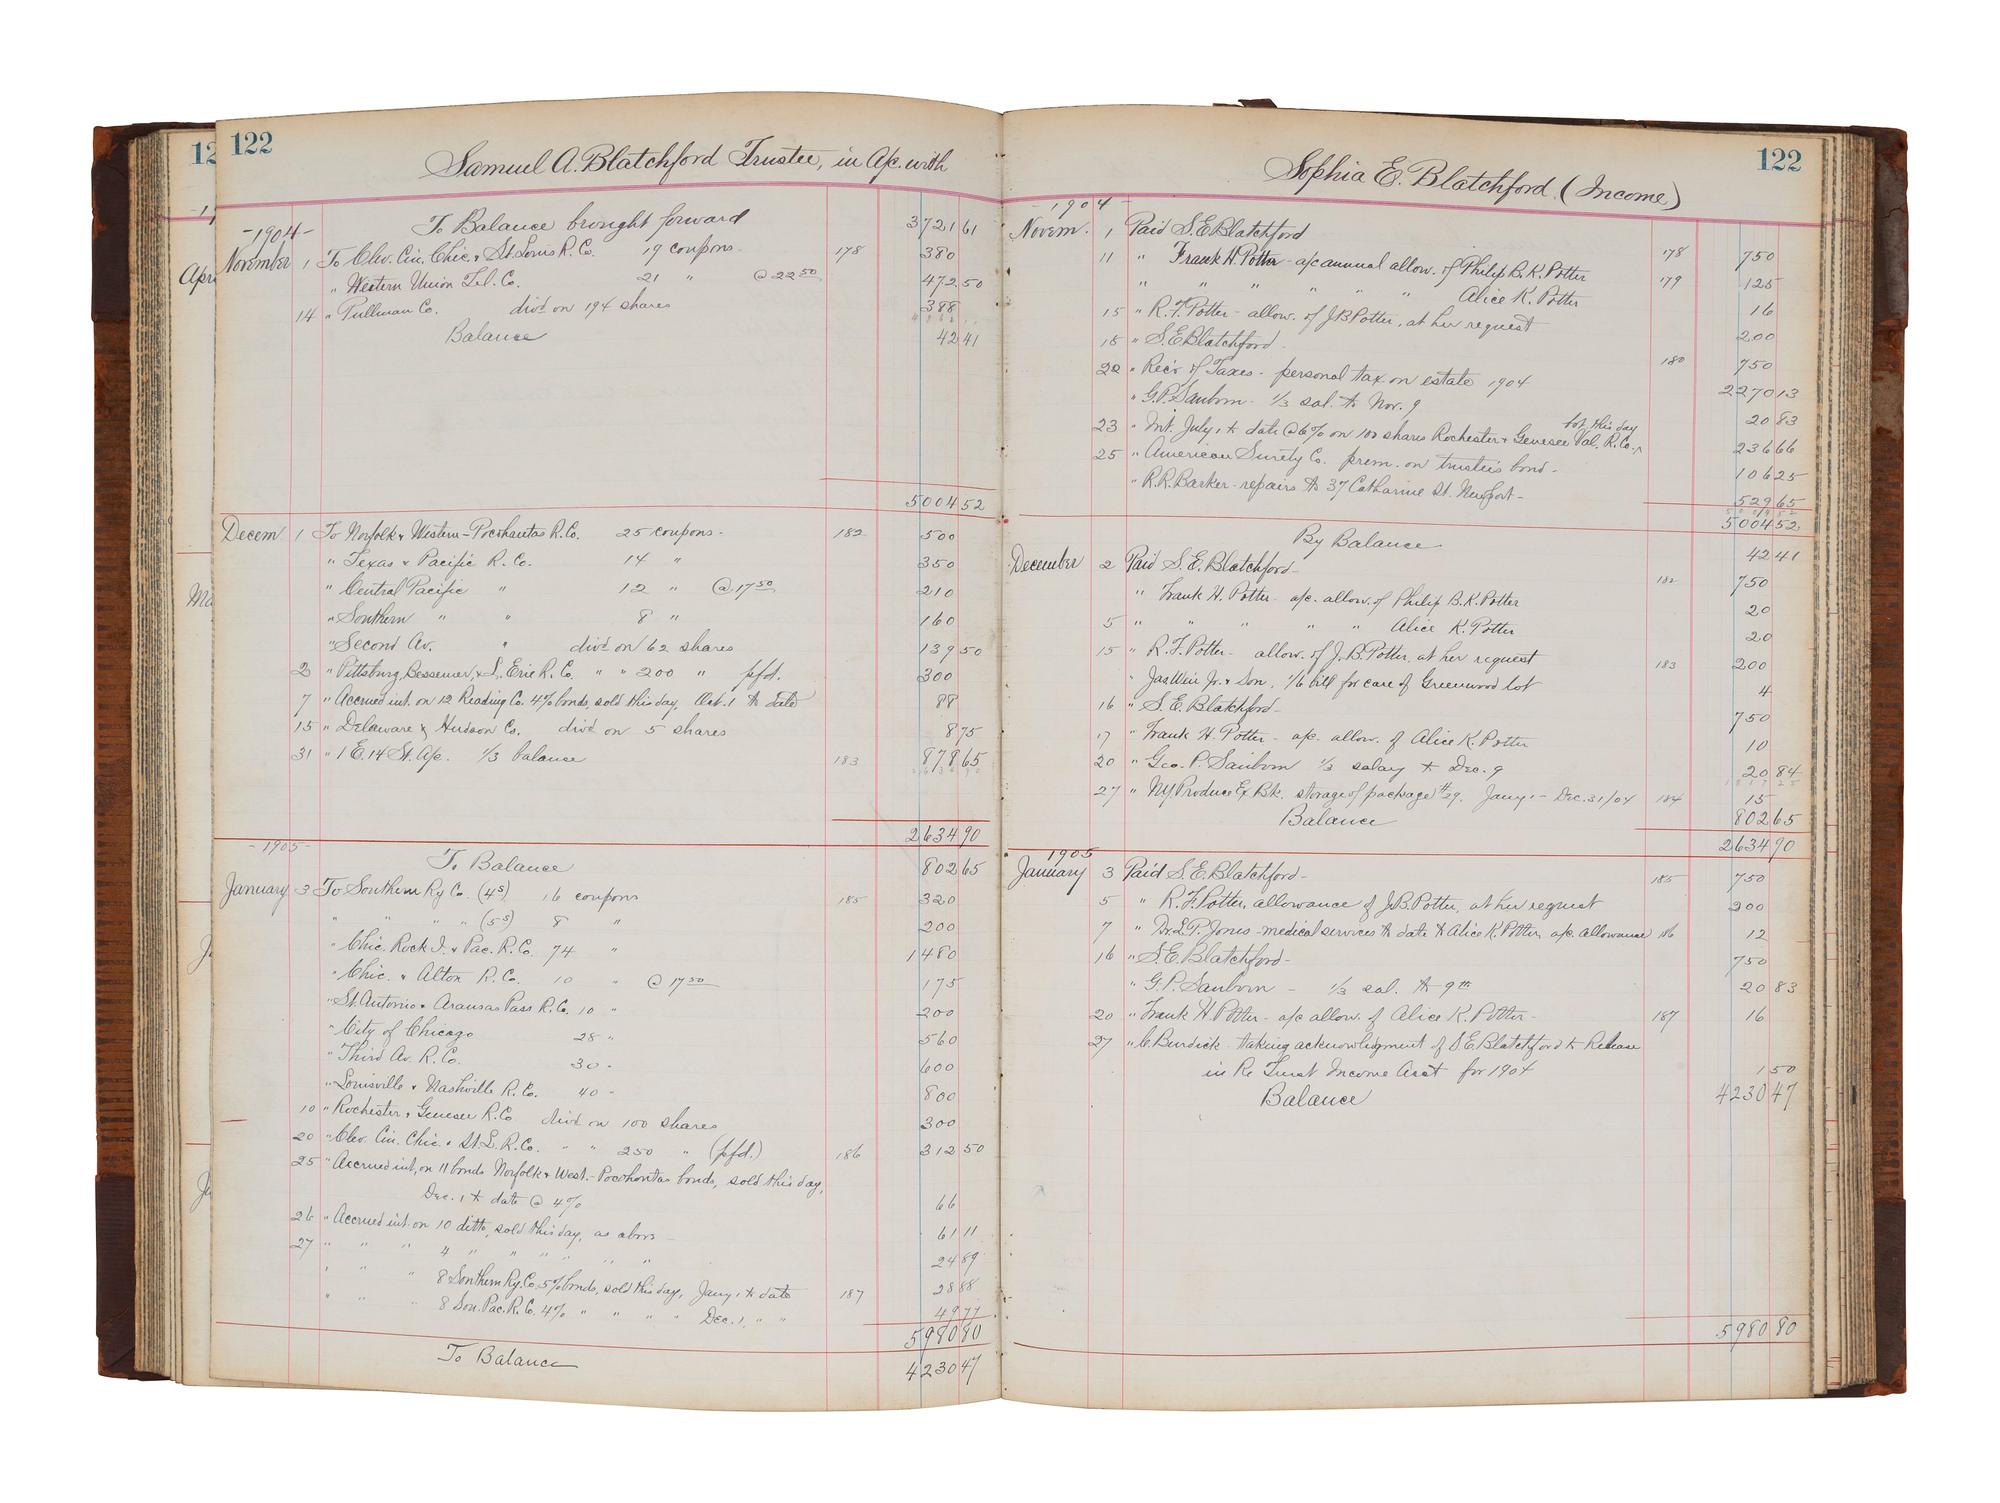 12
122
Samuel A. Blatchford Trustee, in A/c. with
- 1904 -
To Balance brought forward 3721 61
November 1 To Clev. Cin. Chic. & St. Louis R. Co. 19 coupons - 178 380
" Western Union Tel. Co. 21 " @ 22 50 472 50
14 " Pullman Co. divd on 194 shares 388
Balance 42 41
5004 52
Decem 1 To Norfolk & Western - Pocohantas R. Co. 25 coupons - 182 500
" Texas & Pacific R. Co. 14 " 350
" Central Pacific " 12 " @ 17 50 210
" Southern " " 8 " 160
" Second Av. " divd on 62 shares 139 50
2 " Pittsburg, Bessemer, & L. Erie R. Co. " " 200 " pfd. 300
7 " Accrued int. on 12 Reading Co. 4% bonds, sold this day, Oct. 1 to date 88
15 " Delaware & Hudson Co. divd on 5 shares 8 75
31 " 1 E. 14 St. A/c. 1/3 balance 183 878 65
2634 90
- 1905 -
To Balance 802 65
January 3 To Southern Ry Co. (4s) 16 coupons 185 320
" " " " (5s) 8 " 200
" Chic. Rock I. & Pac. R. Co. 74 " 1480
" Chic. & Alton R. Co. 10 " @ 17 50 175
" St. Antonio & Aransas Pass R. Co. 10 " 200
" City of Chicago 28 " 560
" Third Av. R. Co. 30 " 600
" Louisville & Nashville R. R. 40 " 800
10 " Rochester & Genesee R. Co divd on 100 shares 300
20 " Clev. Cin. Chic. & St. L. R. Co. " " 250 " (pfd.) 186 312 50
25 " Accrued int, on 11 bonds Norfolk & West. - Pocohontas bonds, sold this day,
Dec. 1 to date @ 4% 66
26 " Accrued int. on 10 ditto, sold this day, as above - 61 11
27 " " " 4 " " " " " " 24 89
" " " 8 Southern Ry. Co. 5% bonds, sold this day, Jany 1 to date 187 28 88
" " " 8 Sou. Pac. R. Co. 4% " " " " Dec. 1, " " 49 77
5980 80
To Balance 4230 47
122
Sophia E. Blatchford. (Income)
- 1904 -
Novem. 1 Paid S. E. Blatchford 178 750
11 " Frank H. Potter - a/c annual allow. of Philip B. K. Potter 179 125
" " " " " " Alice K. Potter 16
15 " R. F. Potter - allow. of J. B. Potter, at her request 200
15 " S. E. Blatchford 180 750
22 " Recr of Taxes - personal tax on estate 1904 2270 13
" G. P. Sanborn - 1/3 sal. to Nov. 9 20 83
23 " Int. July 1 to date @ 6% on 100 shares Rochester & Genesee Val. R. Co. bot this day 236 66
25 " American Surety Co. prem. on trustee's bond - 106 25
" R. R. Barker - repairs to 37 Catharine St. Newport - 529 65
5004 52
By Balance 42 41
December 2 Paid S. E. Blatchford - 182 750
" Frank H. Potter - a/c. allow. of Philip B. K. Potter 20
5 " " " " " Alice K. Potter 20
15 " R. F. Potter - allow. of J. B. Potter, at her request 183 200
" Jas Weir Jr. & Son, 1/6 bill for care of Greenwood lot 4
16 " S. E. Blatchford - 750
17 " Frank H. Potter - a/c. allow. of Alice K. Potter 10
20 " Geo. P. Sanborn 1/3 salary to Dec. 9 20 84
27 " N.Y. Produce Ex. Bk. storage of package #29. Jany 1 - Dec. 31/04 184 15
Balance 802 65
2634 90
1905
January 3 Paid S. E. Blatchford - 185 750
5 " R. F. Potter, allowance of J. B. Potter, at her request 200
7 " Dr. L. P. Jones - medical services to date to Alice K. Potter, a/c. allowance 186 12
16 " S. E. Blatchford - 750
" G. P. Sanborn - 1/3 sal. to 9th 20 83
20 " Frank H. Potter - a/c allow. of Alice K. Potter - 187 16
27 " C. Burdick - taking acknowledgment of S E Blatchford to Release
in Re Trust Income Acct for 1904 1 50
Balance 4230 47
5980 80